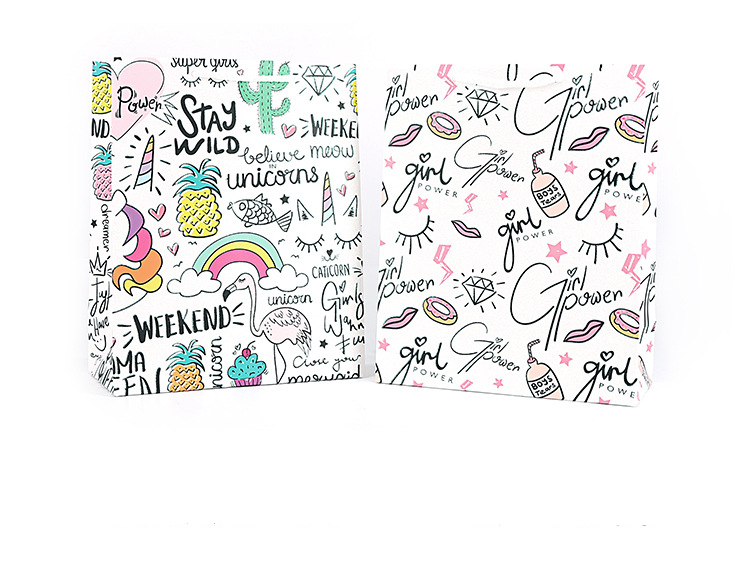 super girls
Power
END
STAY
WILD
WEEKEND
believe
IN
unicorns
meow
dreamer
CATICORN
unicorn
WEEKEND
Girls
Wanna
Fun
Close your
unicorn
Girl
power
Girl
girl
POWER
Girl
Power
BOYS
Tears
girl
POWER
girl
POWER
Girl
Power
Girl
power
girl
POWER
Girl
Power
BOYS
Tears
girl
POWE